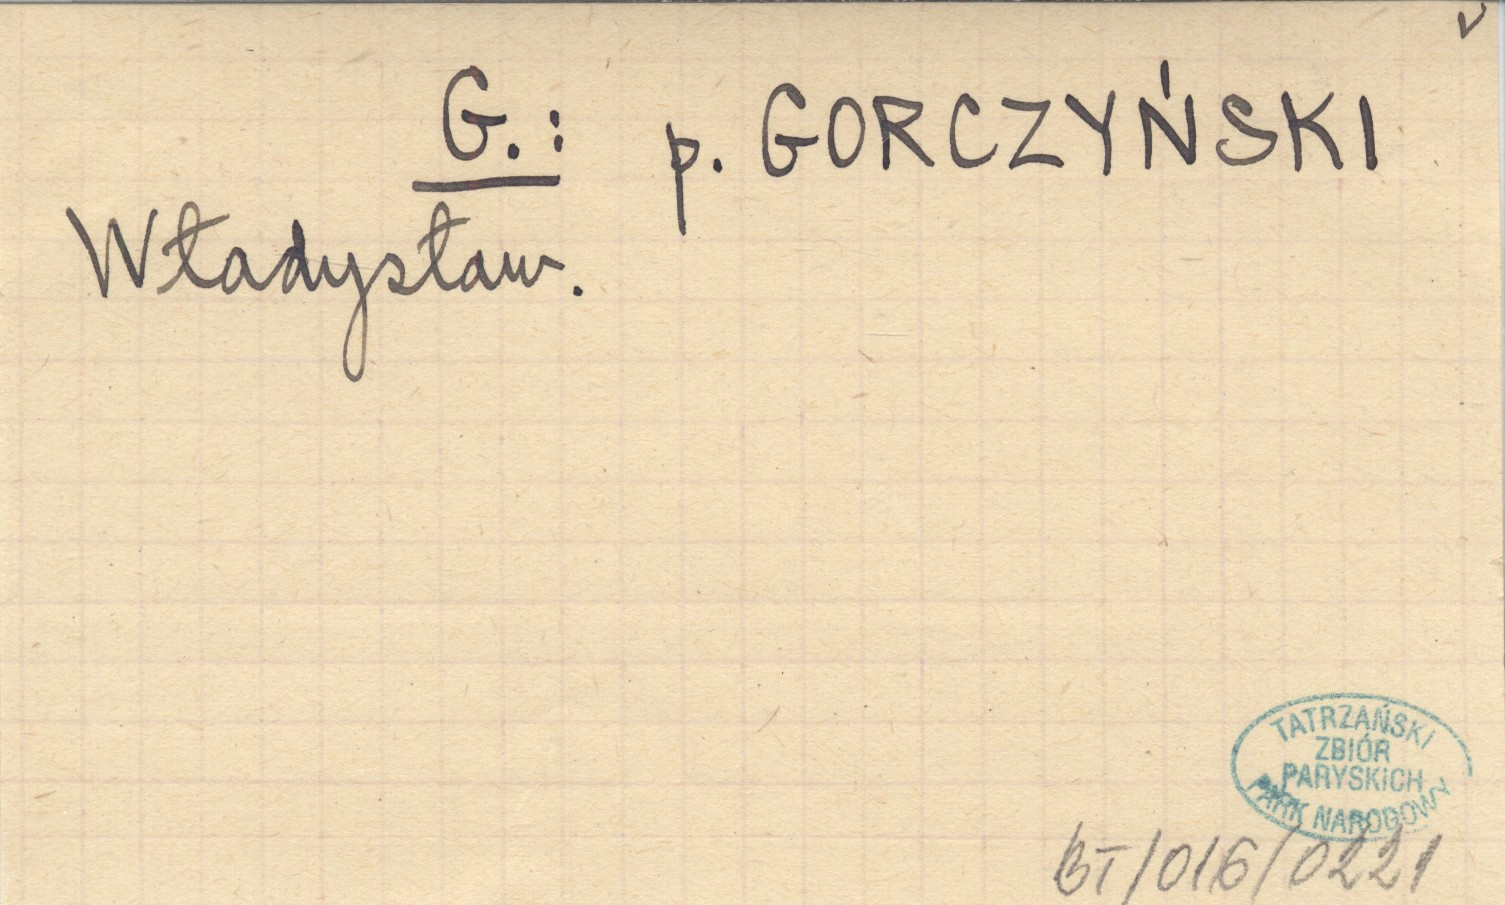 v
G.: p. GORCZYŃSKI
Władysław.
TATRZAŃSKI
ZBIÓR
PARYSKICH
PARK NARODOWY
BT/016/0221